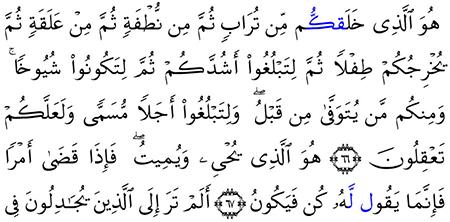 هُوَ ٱلَّذِى خَلَقكُّم مِّن تُرَابٍ ثُمَّ مِن نُّطْفَةٍ ثُمَّ مِنْ عَلَقَةٍ ثُمَّ
يُخْرِجُكُمْ طِفْلًا ثُمَّ لِتَبْلُغُوٓا۟ أَشُدَّكُمْ ثُمَّ لِتَكُونُوا۟ شُيُوخًا ۚ
وَمِنكُم مَّن يُتَوَفَّىٰ مِن قَبْلُ ۖ وَلِتَبْلُغُوٓا۟ أَجَلًا مُّسَمًّى وَلَعَلَّكُمْ
تَعْقِلُونَ ﴿٦٦﴾ هُوَ ٱلَّذِى يُحْىِۦ وَيُمِيتُ ۖ فَإِذَا قَضَىٰٓ أَمْرًا
فَإِنَّمَا يَقُول لَّهُۥ كُن فَيَكُونُ ﴿٦٧﴾ أَلَمْ تَرَ إِلَى ٱلَّذِينَ يُجَـٰدِلُونَ فِىٓ